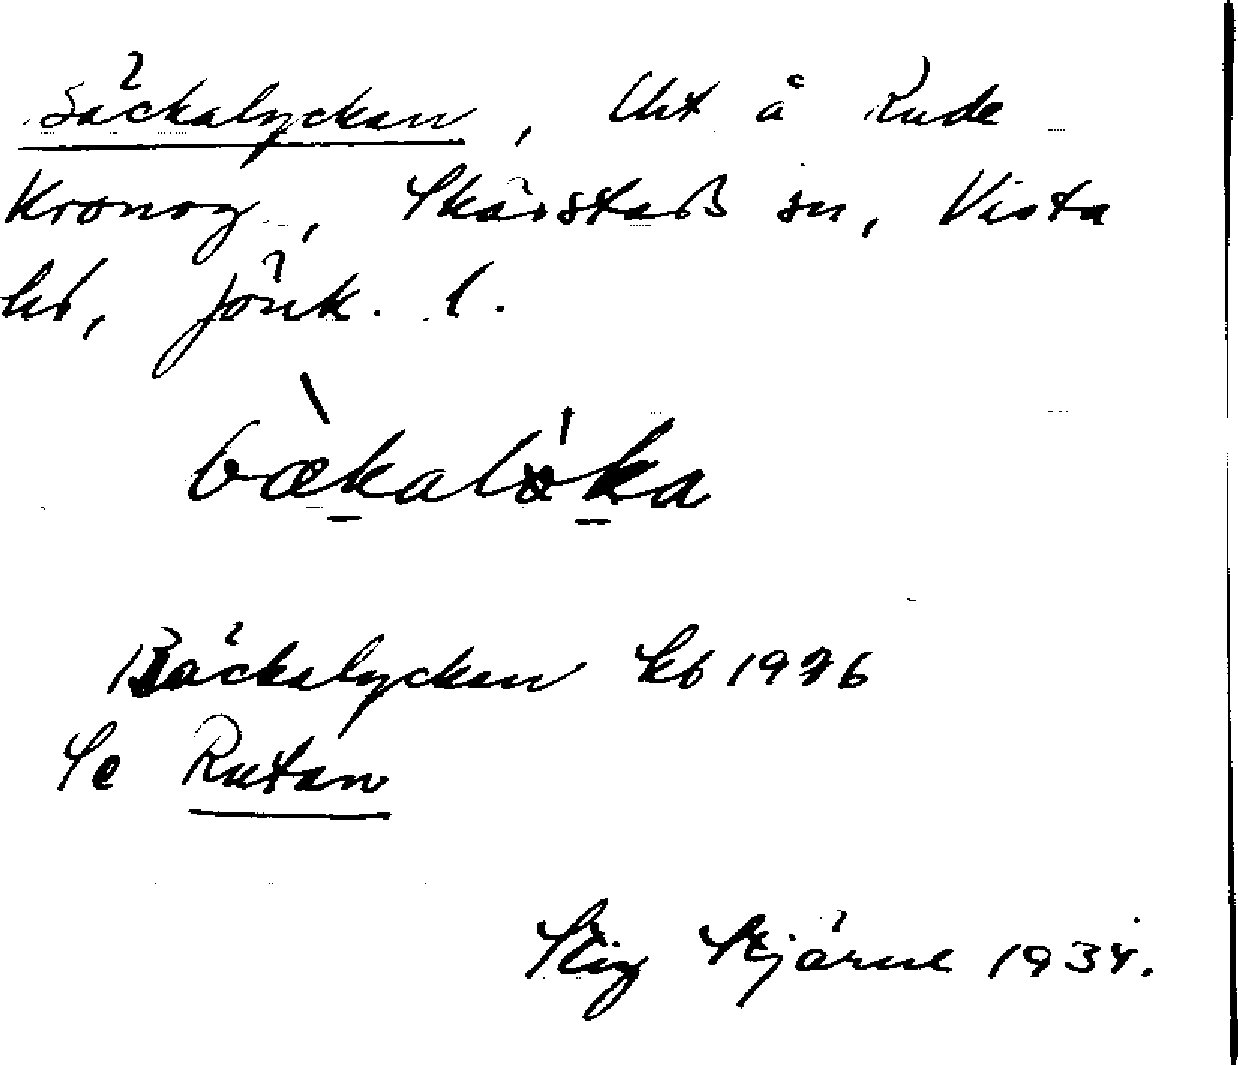 Bäckalyckan, Uht å Rude
Kronog., Skärstads sn, Vista
hd, Jönk. l.
bækalöka
Bäckalyckan kb 1926
Se Rutan
Stig Stjärne 1934.